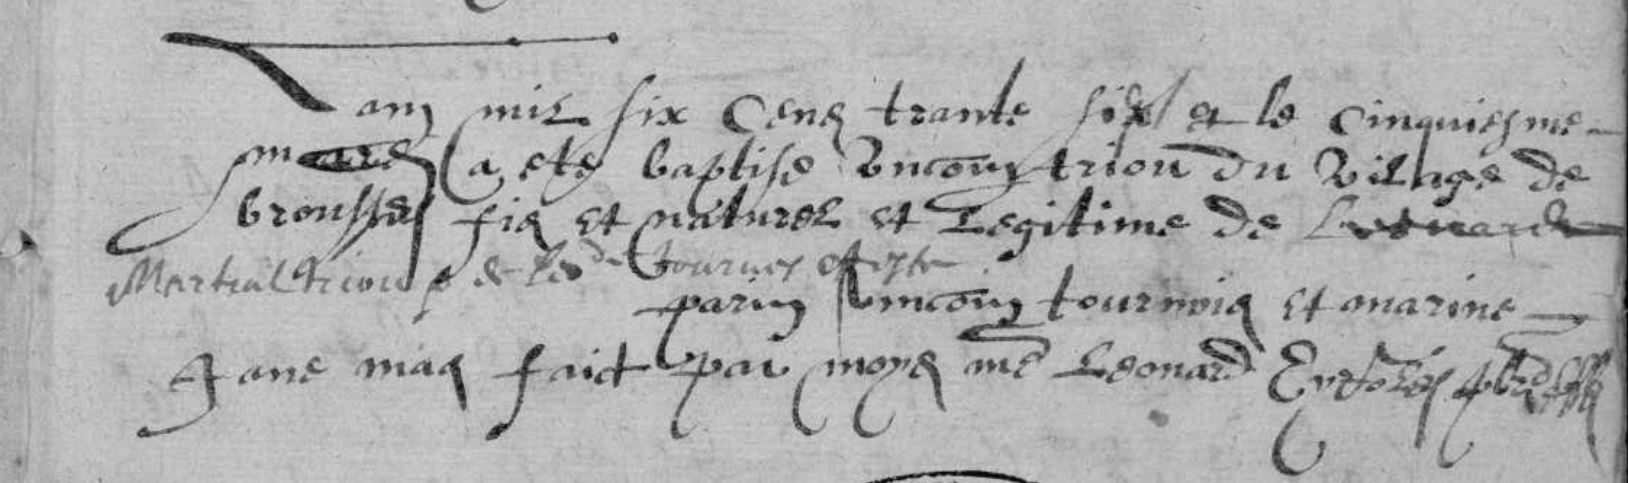 Lan mil six cens trante six et le cinquiesme
mars a ete baptise Simon trion du vilage de
brousses fis et naturel et Legitime de Leonarde
Martial trion tournes
parin Simon tournois et marine
Jane mas fait par moys me Leonard